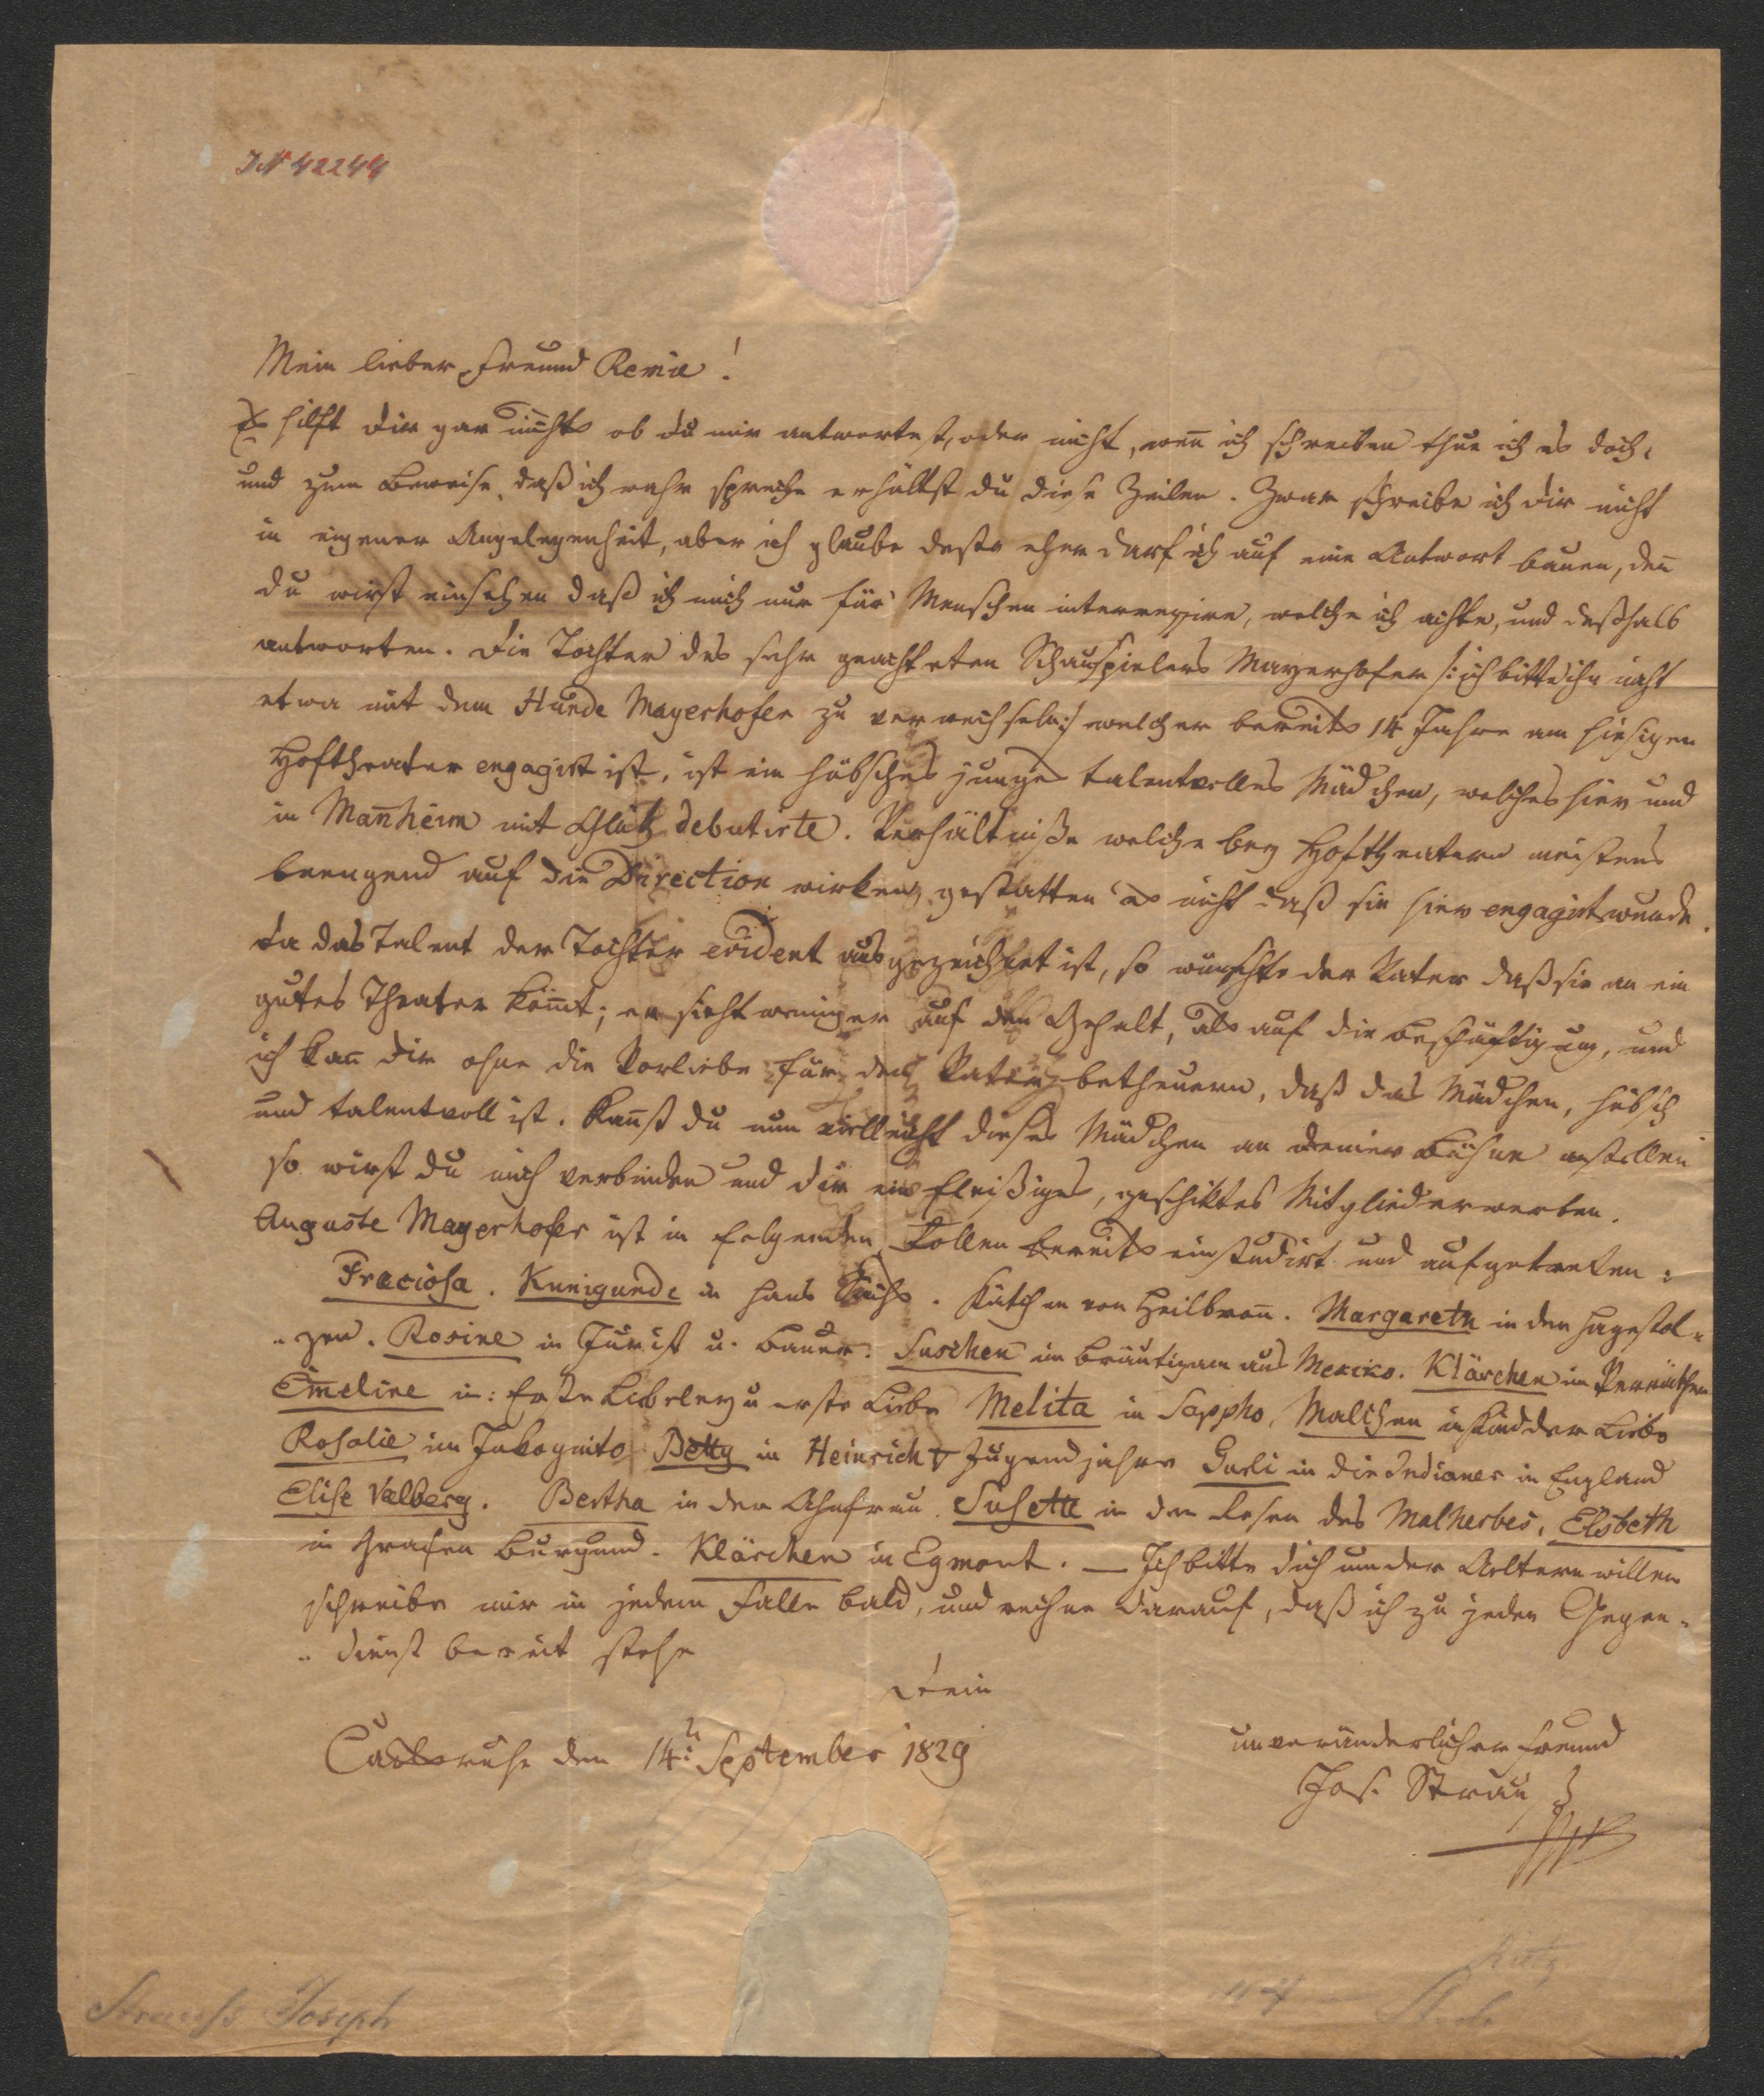 IN 42244
Mein lieber Freund Remie!
Es hilft dir gar nichts ob du mir antwortest, oder nicht, wenn ich schreiben thue ich es doch,
und zum Beweise, daß ich wahr spreche erhältst du diese Zeilen. Zwar schreibe ich dir nicht
in eigener Angelegenheit, aber ich glaube desto eher darf ich auf eine Antwort bauen, den̄
du wirst einsehen daß ich mich nur für Menschen interressire, welche ich achte, und deßhalb
antworten. Die Tochter des sehr geachteten Schauspielers Mayerhofer /: ich bitte ihn nicht
etwa mit dem Hunde Mayerhofer zu verwechseln :/ welcher bereits 14 Jahre am hiesigen
Hoftheater engagirt ist, ist ein hübsches junges talentvolles Mädchen, welches hier und
in Man̄heim mit Glück debutirte. Verhältniße welche bey Hoftheatern meistens
beengend auf die Direction wirken, gestatten es nicht daß sie hier engagirt wurde.
Da das Talent der Tochter evident ausgezeichnet ist, so wünschte der Vater daß sie an ein
gutes Theater köm̄t; er sieht weniger auf den Gehalt, als auf die Beschäftigung, und
ich kan̄ dir ohne die Vorliebe für den Vater betheuern, daß das Mädchen, hübsch
und talentvoll ist. Kan̄st du nun vielleicht dieses Mädchen an deiner Bühne anstellen
so wirst du mich verbinden und dir ein fleißiges, geschiktes Mitglied erwerben.
Auguste Mayerhofer ist in folgenden Rollen bereits einstudirt und aufgetreten:
Preciosa. Kunigunde in Hans Sachs. Kätchen von Heilbron̄. Margareta in den Hagestol=
=zen. Rosine in Jurist u. Bauer. Suschen im Bräutigam aus Mexico. Klärchen im Verräther
Em̄eline in: Erste Liebeley u erste Liebe Melita in Sappho, Malchen in Kind der Liebe
Rosalie im Inkognito Betty in Heinrich V Jugendjahre Gurli in die Indianer in England
Elise Valberg. Bertha in der Ahnfrau. Susette in den Rosen des Malherbes, Elsbeth
in Grafen Burgund. Klärchen in Egmont. — Ich bitte dich um der Aeltern willen
schreibe mir in jedem Falle bald, und rechne darauf, daß ich zu jeden Gegen=
=dienst bereit stehe
Dein
unveränderlicher Freund
Carlsruhe den 14t September 1829
Jos. Strauß
Strauss Joseph